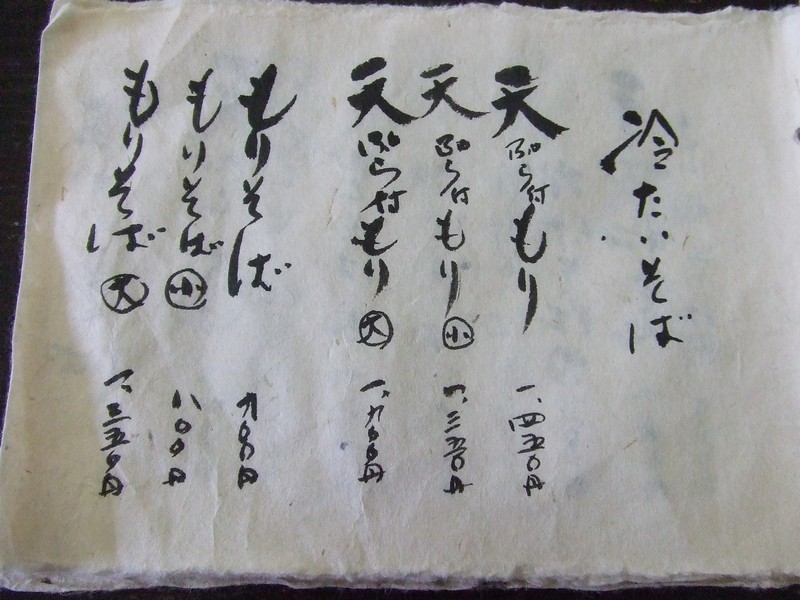 冷たいそば
天ぷら付もり 一、四五〇円
天ぷら付もり㊙小 一、三五〇円
天ぷら付もり大 一、九〇〇円
もりそば 九〇〇円
もりそば小 八〇〇円
もりそば大 一、三五〇円